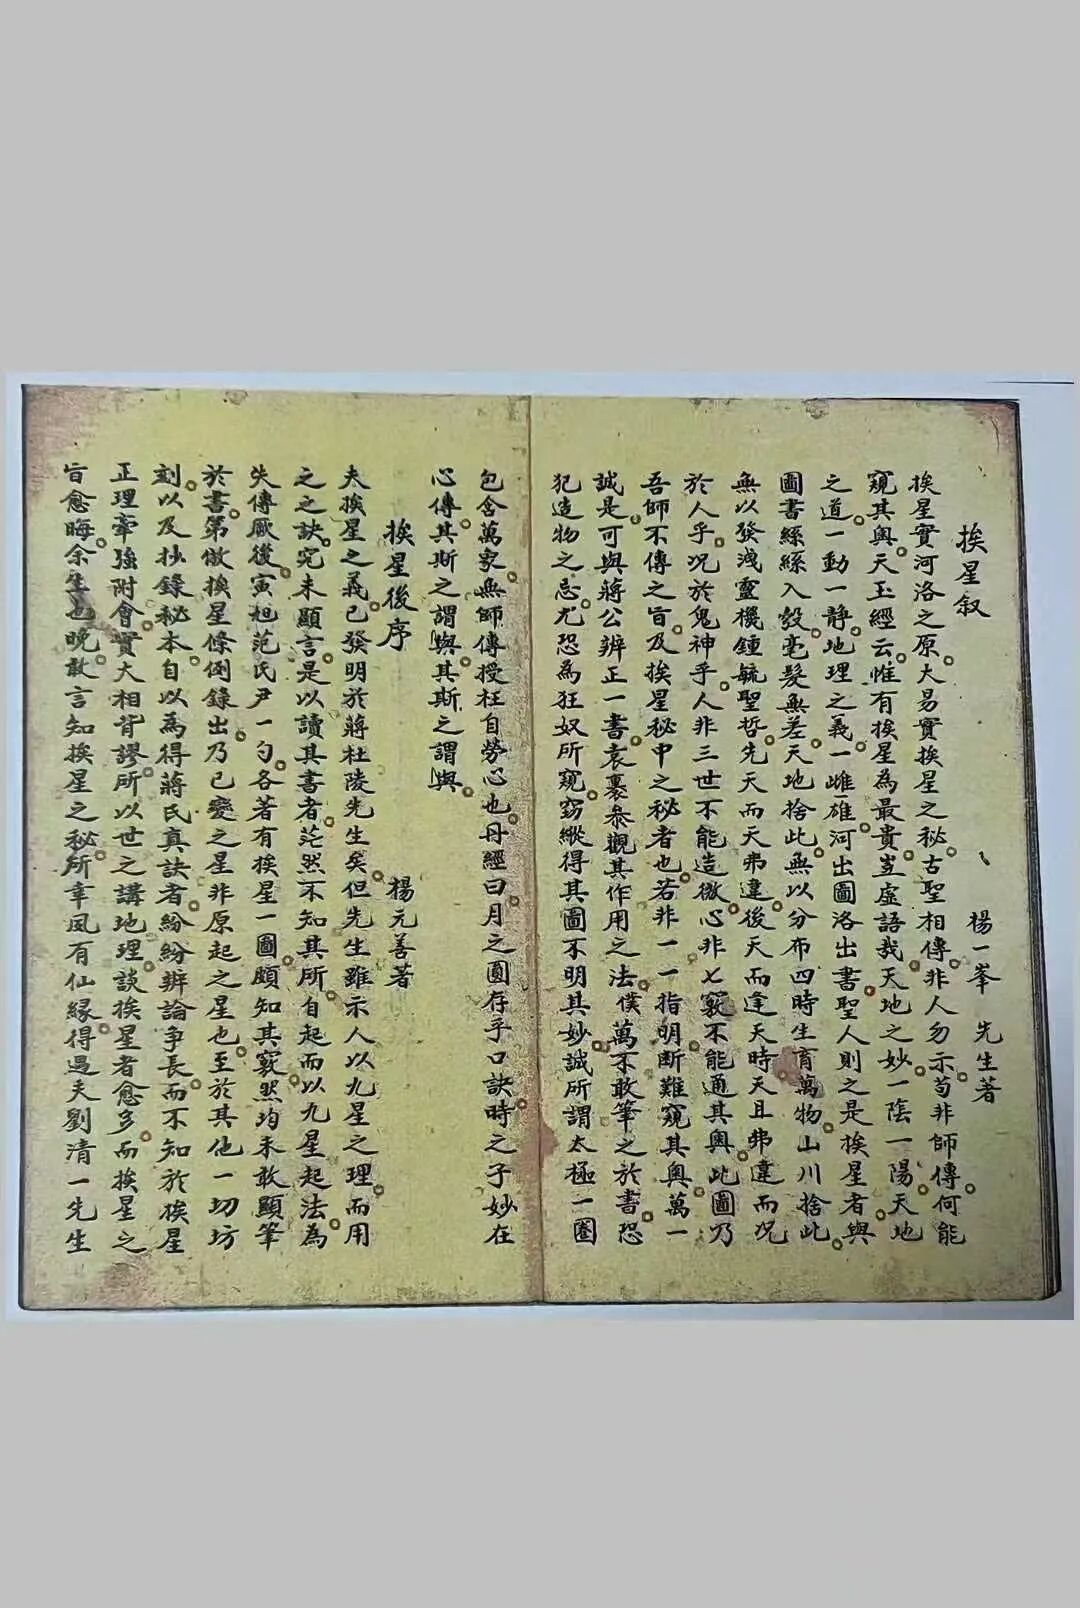 挨星叙
楊一峯　先生著
挨星實河洛之原大易實挨星之秘古聖相傳非人勿示苟非師傳何能
窺其奧天玉經云惟有挨星為最貴豈虛語哉天地之妙一陰一陽天地
之道一動一靜地理之義一雌一雄河出圖洛出書聖人則之是挨星者與
圖書絲絲入彀毫髮無差天地捨此無以分布四時生育萬物山川捨此
無以發洩靈機鍾毓聖哲先天而天弗違後天而逢天時天且弗違而況
於人乎況於鬼神乎人非三世不能造微心非七竅不能通其奧此圖乃
吾師不傳之旨及挨星秘中之秘者也若非一一指明斷難窺其奧萬一
誠是可與蔣公辨正一書表裏參觀其作用之法僕萬不敢筆之於書恐
犯造物之忌尤恐為狂奴所窺竊縱得其圖不明其妙誠所謂太極一圈
包含萬象無師傳授枉自勞心也丹經曰月之圓存乎口訣時之子妙在
心傳其斯之謂與其斯之謂與
挨星後序
楊元善著
夫挨星之義已發明於蔣杜陵先生矣但先生雖示人以九星之理而用
之之訣究未顯言是以讀其書者茫然不知其所自起而以九星起法為
失傳厥後寅旭范氏尹一勺各著有挨星一圖頗知其竅然均未敢顯筆
於書第倣挨星條例錄出乃已變之星非原起之星也至於其他一切坊
刻以及抄錄秘本自以為得蔣氏真訣者紛紛辨論爭長而不知於挨星
正理牽強附會實大相背謬所以世之講地理談挨星者愈多而挨星之
旨愈晦余生也晚敢言知挨星之秘所幸夙有仙緣得遇夫劉清一先生